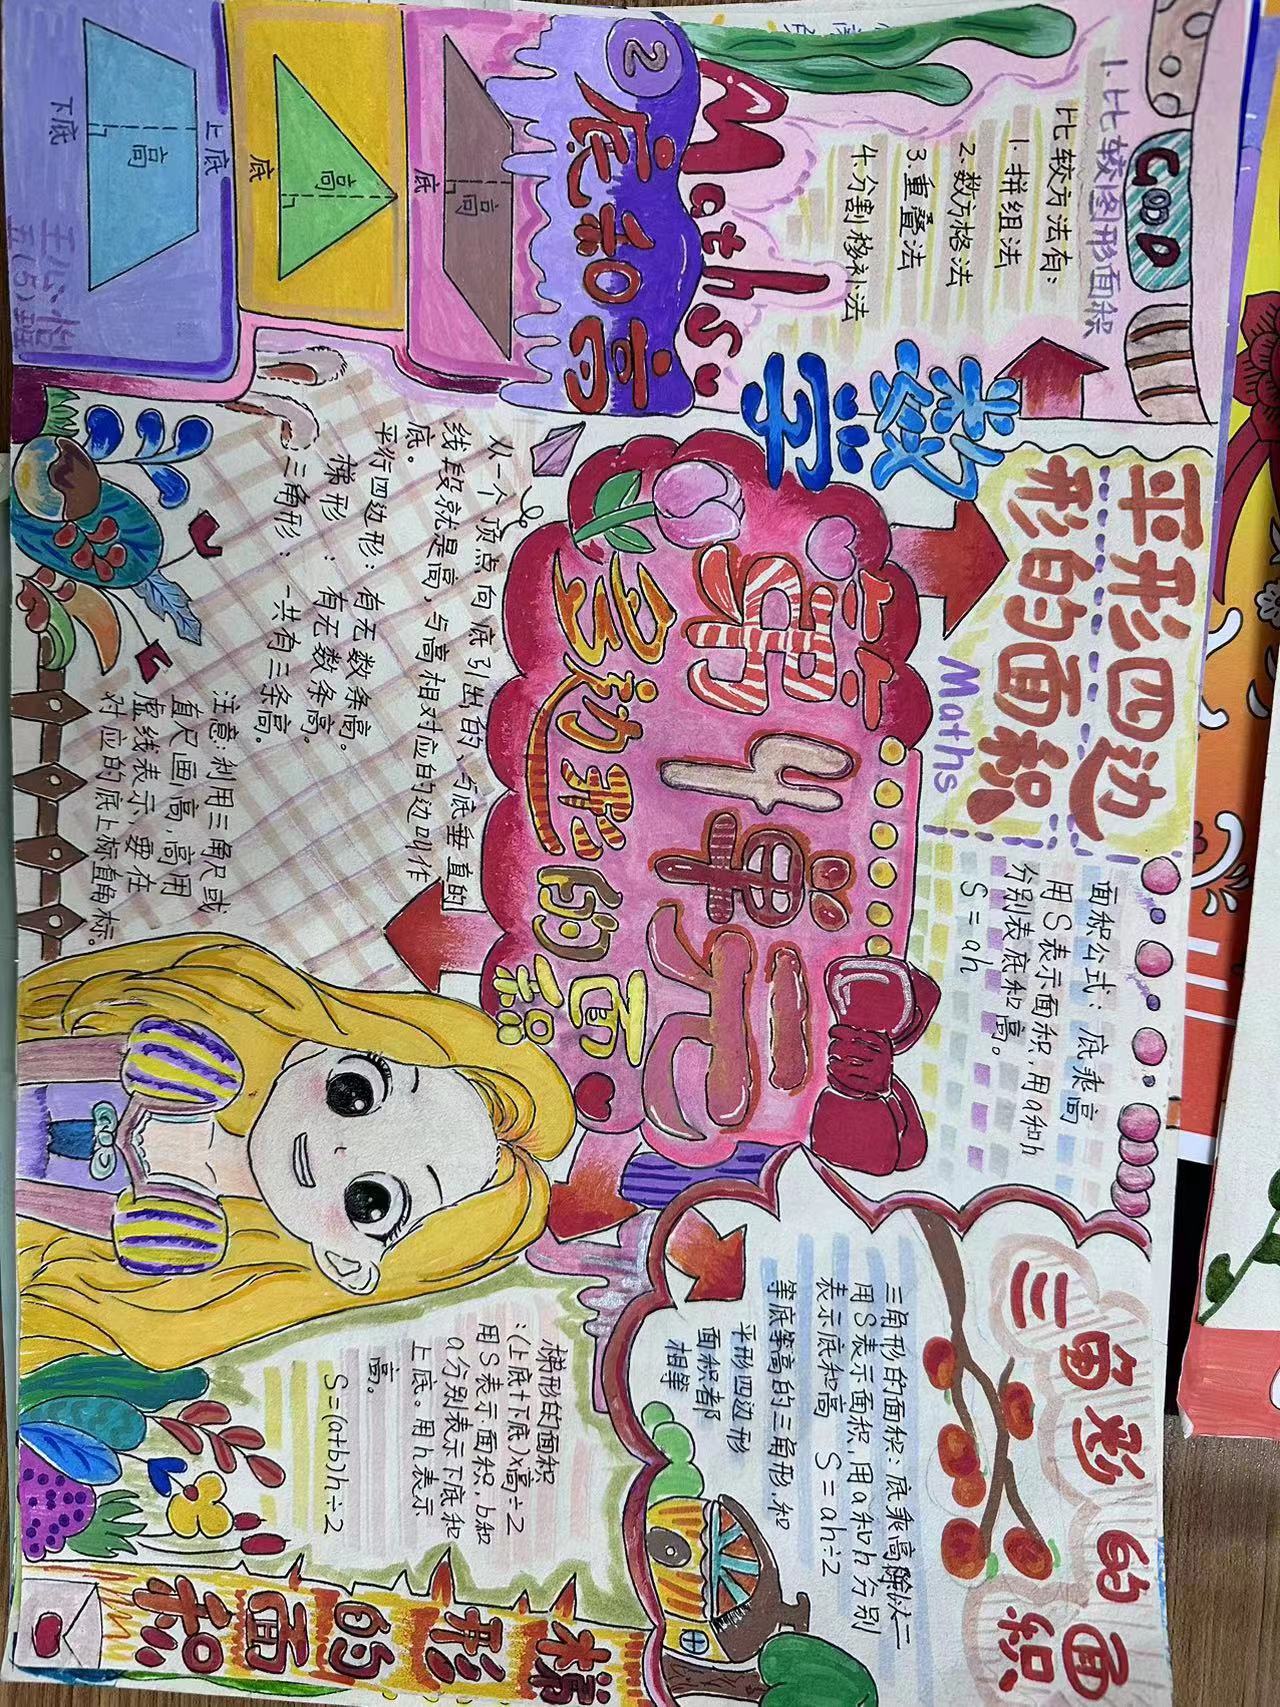 GOOD
1.比较图形面积
比较方法有：
1.拼组法
2.数方格法
3.重叠法
4.分割移补法
Maths
数学
②
底和高
高
底
高
底
上底
高
下底
五(5)班
平形四边
形的面积
Maths
面积公式：底乘高
用S表示面积，用a和h
分别表底和高。
S=ah
第4单元
多边形的面积
从一个顶点向底引出的，与底垂直的
线段就是高，与高相对应的边叫作
底。
平行四边形：有无数条高。
梯形：有无数条高。
三角形：一共有三条高。
注意：利用三角尺或
直尺画高，高用
虚线表示，要在
对应的底上标直角标。
三角形的面积
三角形的面积：底乘高除以二
用S表示面积，用a和h分别
表示底和高 S=ah÷2
等底等高的三角形，和
平形四边形
面积都
相等
梯形的面积
梯形的面积
：(上底+下底)×高÷2
用S表示面积，b和
a分别表示下底和
上底。用h表示
高。
S=(a+b)h÷2